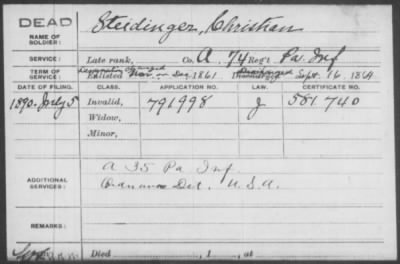 DEAD
NAME OF SOLDIER: Steidinger, Christian
SERVICE: Late rank, Co. A, 74 Reg't Pa Inf
TERM OF SERVICE: Enlisted Nov. or Dec. 1861 Discharged Sept. 16, 1864
DATE OF FILING. CLASS. APPLICATION NO. LAW. CERTIFICATE NO.
1890. July 5 Invalid, 791998 J 581.740
Widow,
Minor,
ADDITIONAL SERVICES: A 35 Pa Inf
Det. U.S.A.
REMARKS:
Died , 1 , at